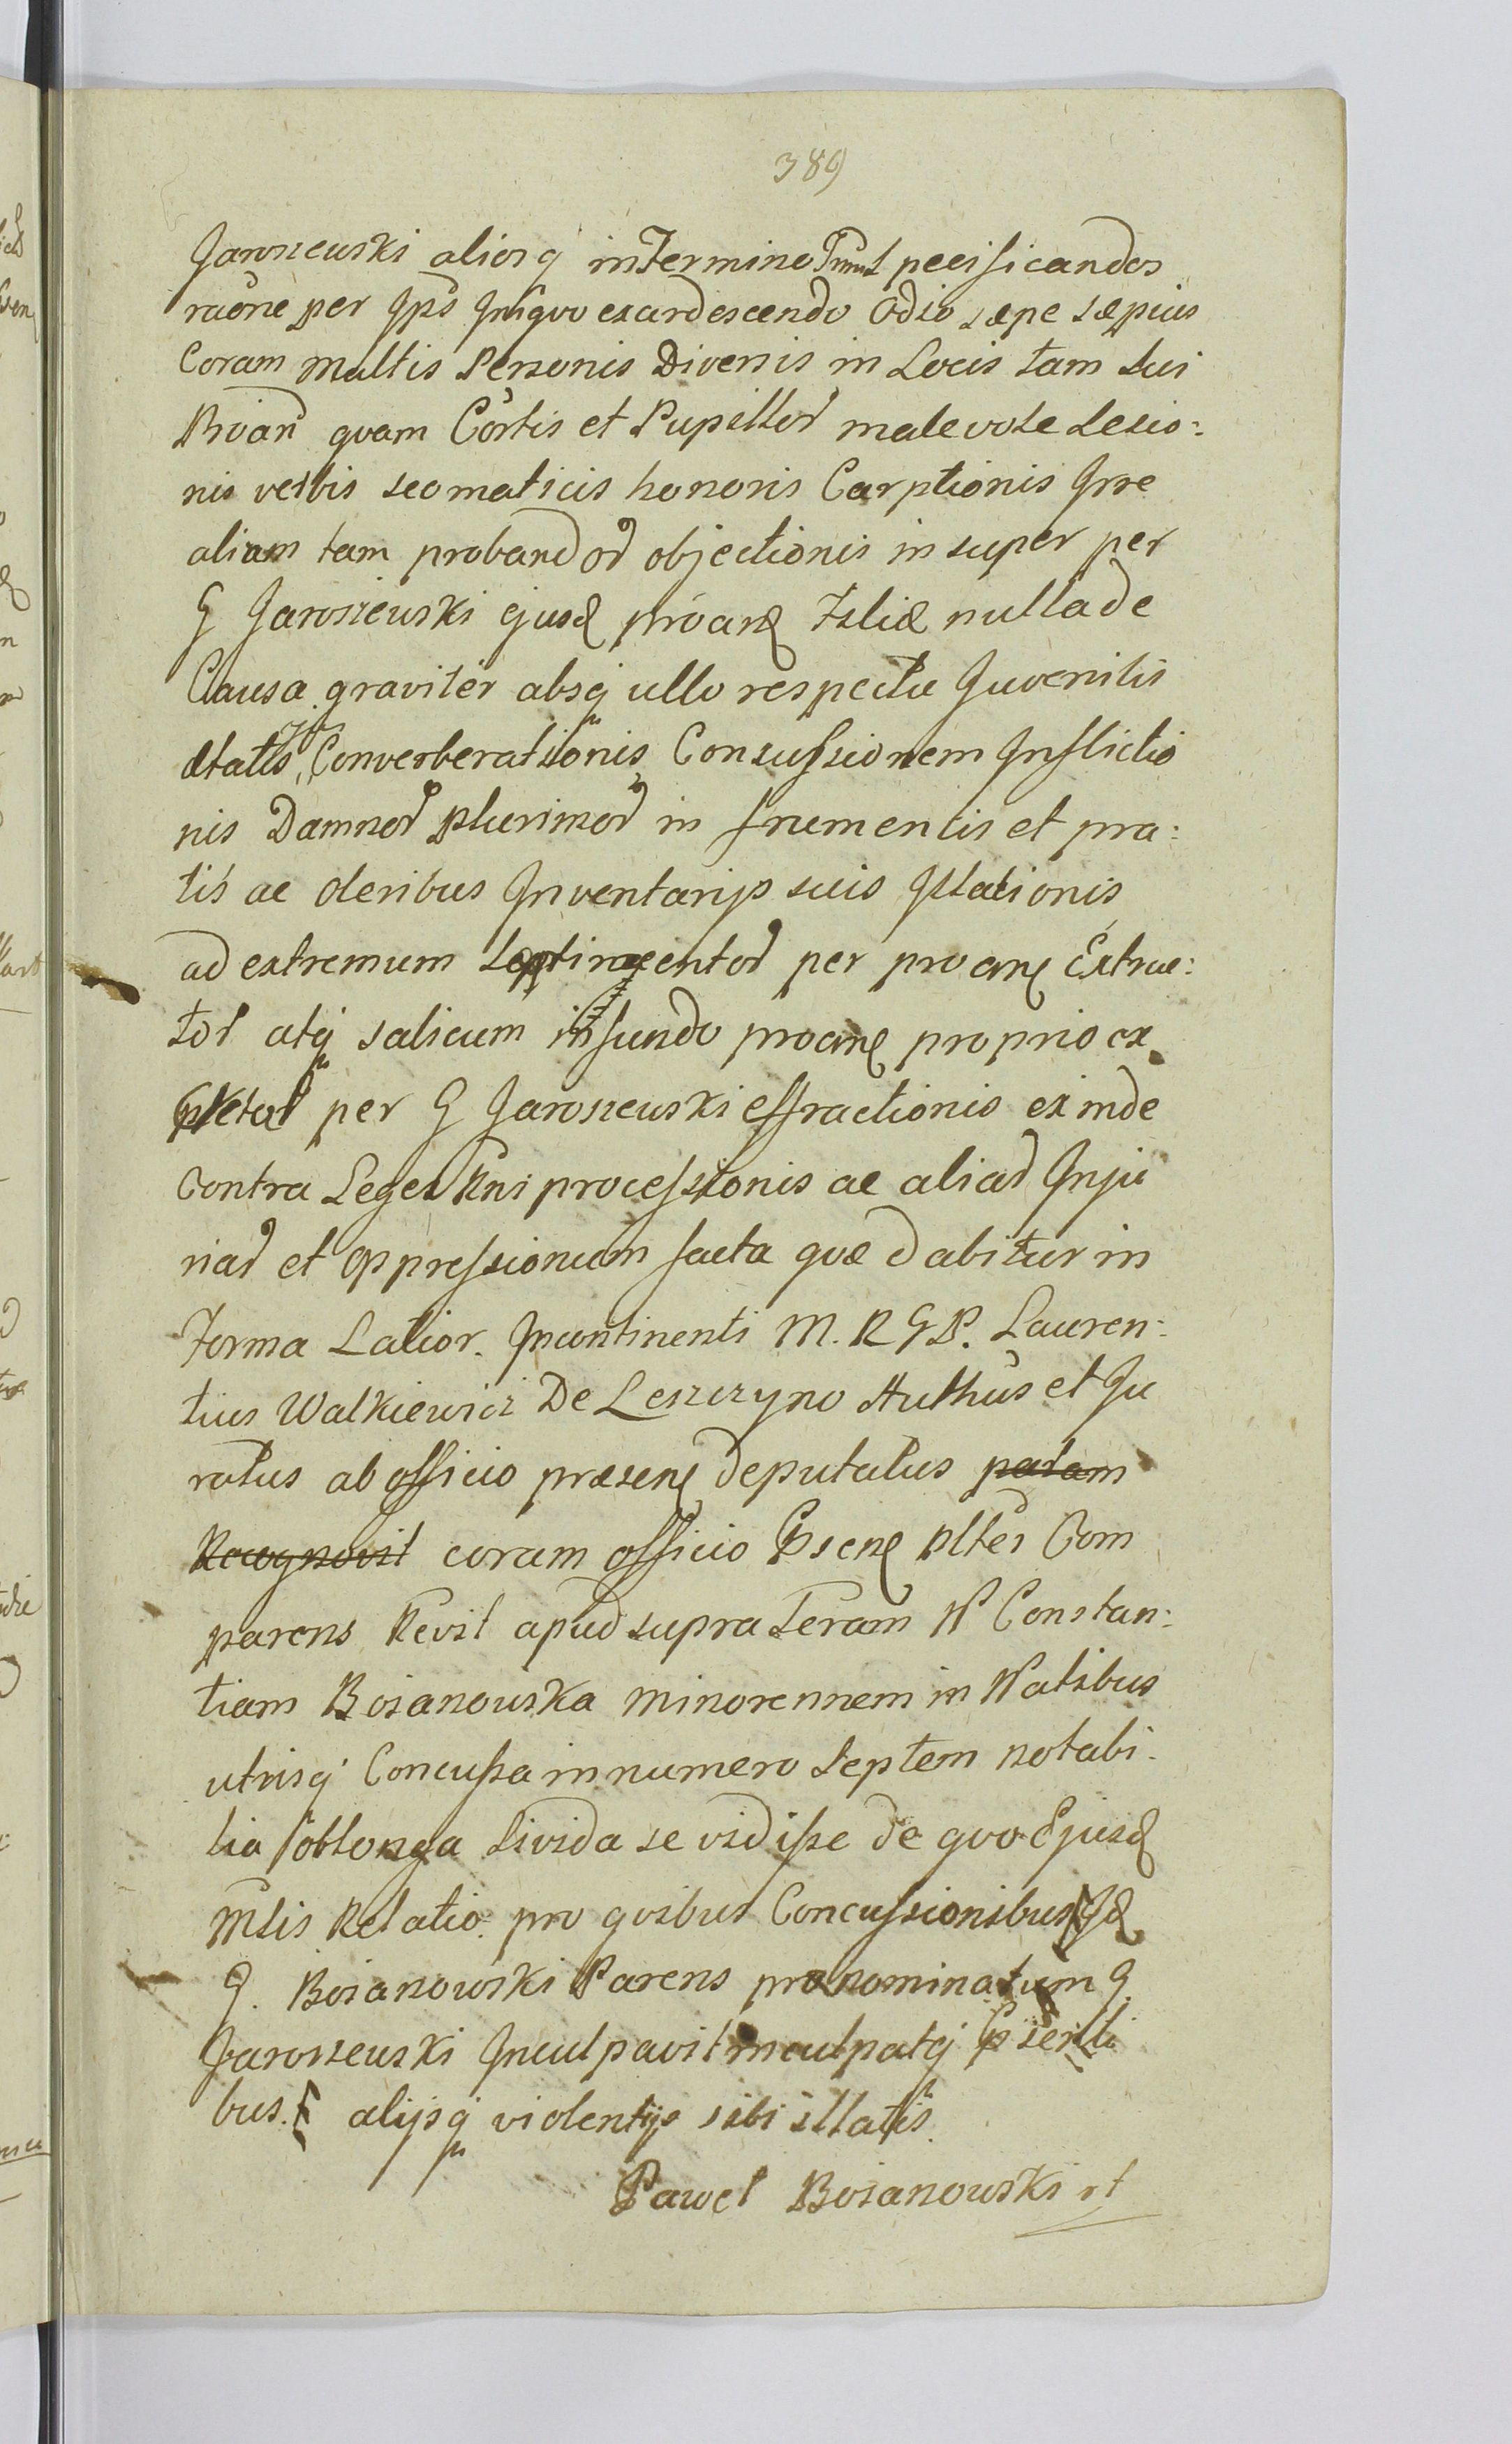 389
Jaroszewski aliosq in Termino peeisicandos
raõne per Jps Jniquo exardescendo Odio sæpe sæpius
Coram multis Personis Diversis in Locis tam sui
quam Cõrtis et Pupillor malevole Lesio:
nis verbis scomaticis honoris Carptionis
aliam tam probandor objectionis in super per
G Jaroszewski ejusd nulla de
Causa graviter absq ullo respectu Juvenilis
Ætatis Converberationis Conсussionem Jnflictio
nis Damnor plurimor in frumentis et pra:
tis ac oleribus Jnventarijs suis Jllationis
ad extremum per Extrac:
tor atq salicum in fundo proprio ex
per G Jaroszewski effractionis exinde
Contra Leges Rni processionis ac aliar Jnju
riar et oppressionum facta quæ dabitur in
Forma Latior. Jncontinenti M. R G P. Lauren:
tius Walkiewicz De Leszczyno Authus et Ju
ratus ab officio præsen deputatus palam
Recognovit coram officio Psen Plter Com
parens Revit apud supra N Constan:
tiam Boianowska minorennem in Natibus
utrisq Concussa in numero septem notabi:
lia oblonga livida se vidisse de quo Ejusd
Mlis Relatio. pro quibus Concussionibus Jd
G. Boianowski Parens prænominatum G.
Jaroszewski Jnculpavit inculpatq Psenti
bus. alijsq violentijs sibi illatis.
Paweł Boianowski